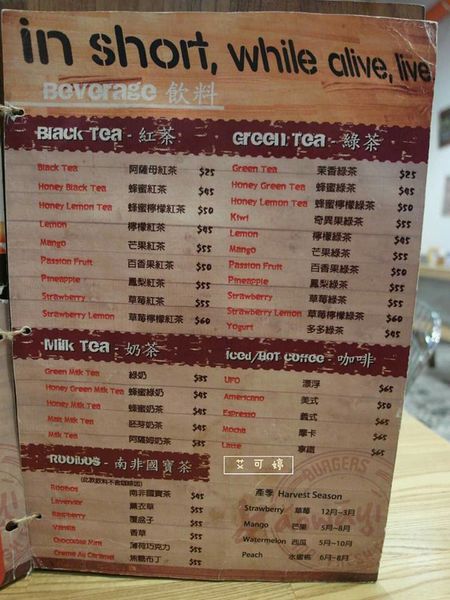 in short, while alive, live
Beverage 飲料
Black Tea - 紅茶
Black Tea 阿薩母紅茶 $25
Honey Black Tea 蜂蜜紅茶 $45
Honey Lemon Tea 蜂蜜檸檬紅茶 $50
Lemon 檸檬紅茶 $45
Mango 芒果紅茶 $55
Passion Fruit 百香果紅茶 $50
Pineapple 鳳梨紅茶 $55
Strawberry 草莓紅茶 $55
Strawberry Lemon 草莓檸檬紅茶 $60
Green Tea - 綠茶
Green Tea 茉香綠茶 $25
Honey Green Tea 蜂蜜綠茶 $45
Honey Lemon Tea 蜂蜜檸檬綠茶 $50
Kiwi 奇異果綠茶 $55
Lemon 檸檬綠茶 $45
Mango 芒果綠茶 $55
Passion Fruit 百香果綠茶 $50
Pineapple 鳳梨綠茶 $55
Strawberry 草莓綠茶 $55
Strawberry Lemon 草莓檸檬綠茶 $60
Yogurt 多多綠茶 $45
Milk Tea - 奶茶
Green Milk Tea 綠奶 $35
Honey Green Milk Tea 蜂蜜綠奶 $55
Honey Milk Tea 蜂蜜奶茶 $55
Malt Milk Tea 胚芽奶茶 $55
Milk Tea 阿薩姆奶茶 $35
Iced/Hot Coffee - 咖啡
UFO 漂浮 $65
Americano 美式 $50
Espresso 義式
Mocha 摩卡 $65
Latte 拿鐵 $65
Rooibos - 南非國寶茶
(此款飲料不含咖啡因)
Rooibos 南非國寶茶 $45
Lavender 薰衣草 $55
Raspberry 覆盆子 $55
Vanilla 香草 $55
Chocolate Mint 薄荷巧克力 $55
Creme Au Caramel 焦糖布丁 $55
艾可婷
BURGERS
產季 Harvest Season
Strawberry 草莓 12月~3月
Mango 芒果 5月~8月
Watermelon 西瓜 5月~10月
Peach 水蜜桃 6月~8月